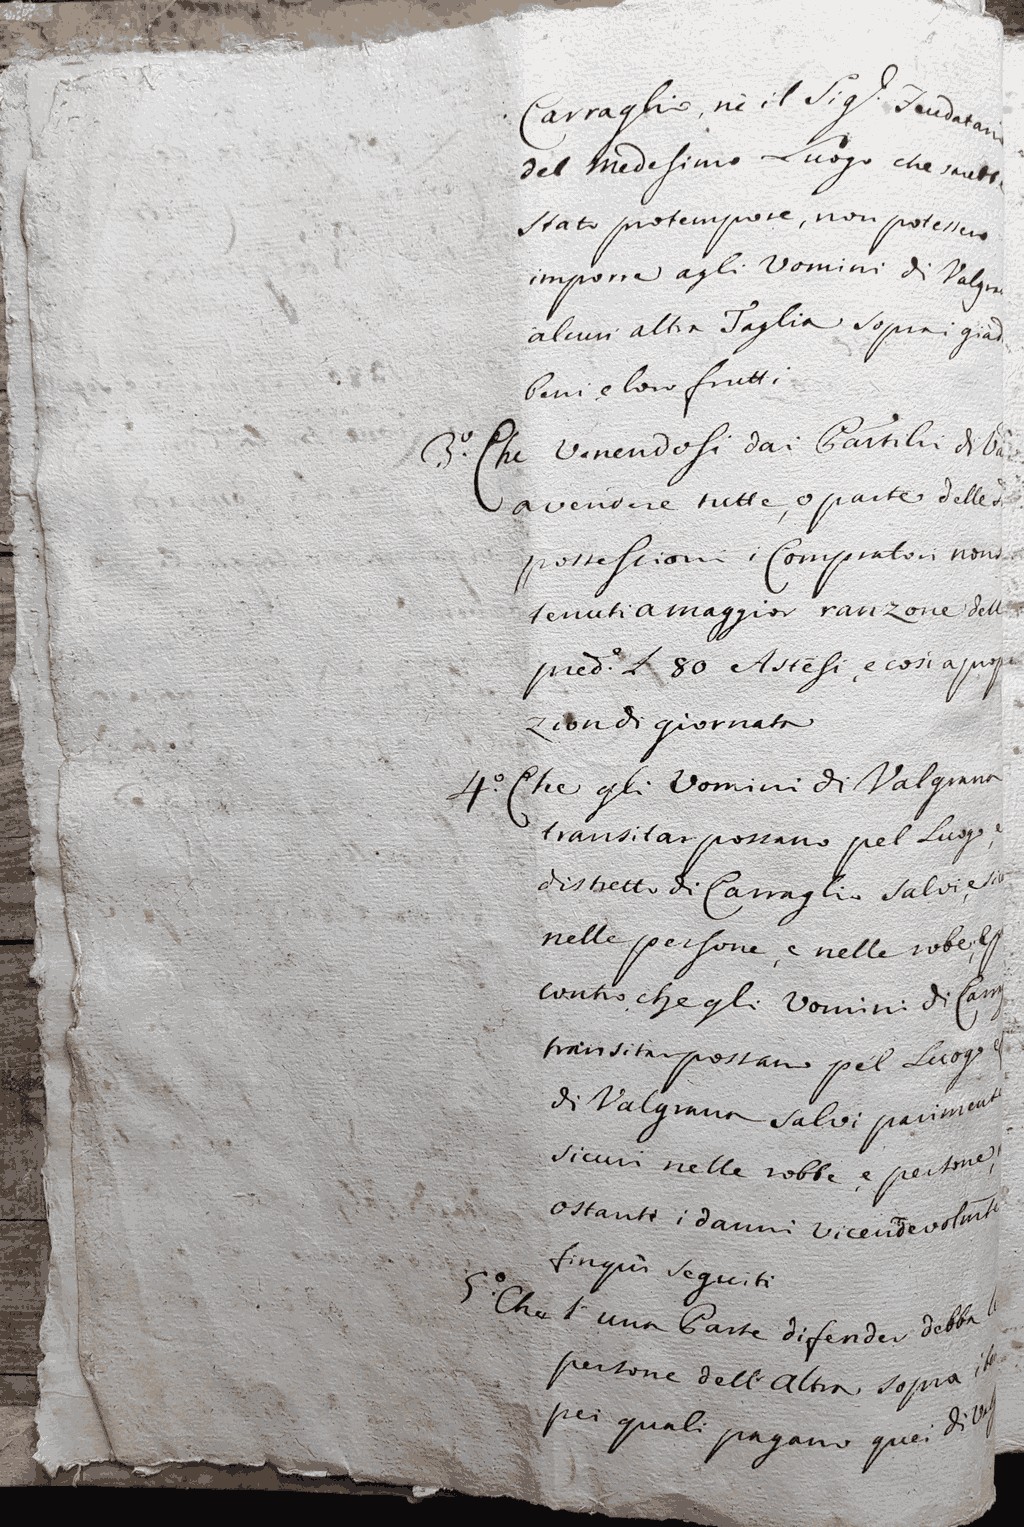 Carraglio, nè il Sig.r Feudatari
del medesimo Luogo che
stato protempore, non potessero
imporre agli Uomini di Valgra
alcun altra Taglia sopra i
beni e loro frutti
3.° Che venendosi dai Particolari di Va
a vendere tutte, o parte delle
possessioni i Compratori non
tenuti a maggior ranzone dell
pred.e L 80 Astesi, e così a prop
zion di giornata
4.° Che gli Uomini di Valgrana
transitar possano pel Luogo, e
distretto di Carraglio salvi, e sic
nelle persone, e nelle robe,
contro, che gli Uomini di Carra
transitar possano pel Luogo
di Valgrana salvi pariment
sicuri nelle robbe, e persone,
ostanti i danni vicendevolmte
finqui seguiti
5.° Che l'una Parte difender debba
persone dell'altra sopra
pei quali pagano quei di Val